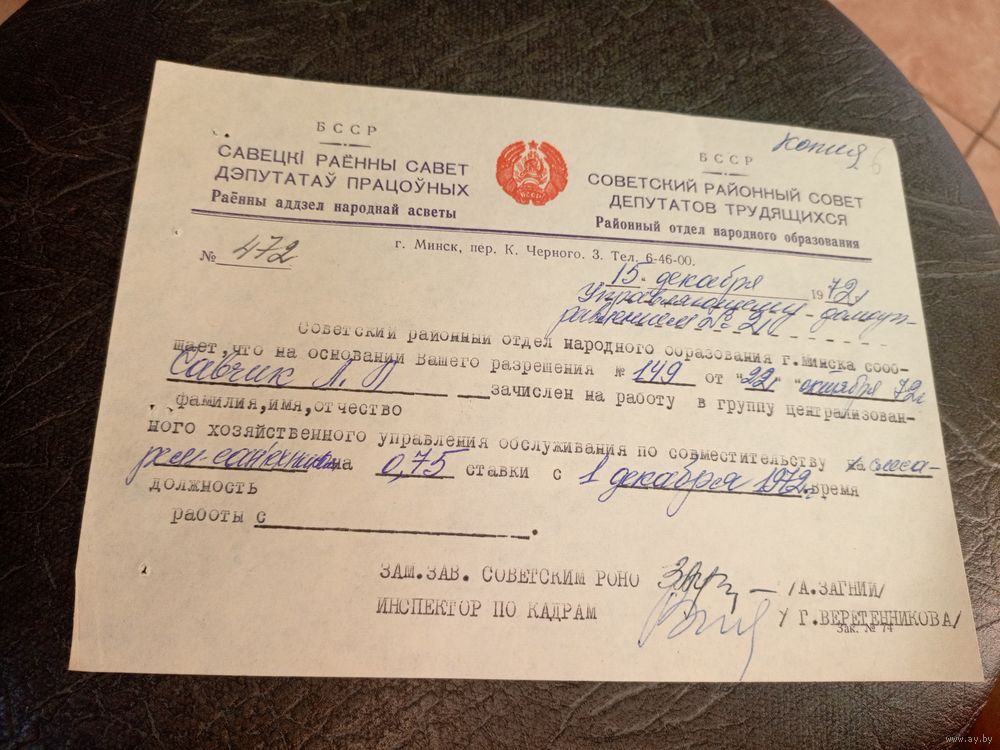 Копия
БССР
САВЕЦКІ РАЁННЫ САВЕТ
ДЭПУТАТАЎ ПРАЦОЎНЫХ
Раённы аддзел народнай асветы
БССР
БССР
СОВЕТСКИЙ РАЙОННЫЙ СОВЕТ
ДЕПУТАТОВ ТРУДЯЩИХСЯ
Районный отдел народного образования
г. Минск, пер. К. Черного. 3. Тел. 6-46-00.
№ 472
15 декабря 1972 г
Управляющему домоуп-
равлением № 21
Советский районнй отдел народного образования г.Минска сооб-
щает,что на основании Вашего разрешения № 149 от "22" "октября 72г
Савчик Л. П зачислен на работу в группу централизован-
фамилия,имя,отчество
ного хозяйственного управления обслуживания по совместительству слеса-
рем-сантехником на 0,75 ставки с 1 декабря 1972г. время
должность
работы с .
ЗАМ.ЗАВ. СОВЕТСКИМ РОНО /А.ЗАГНИЙ/
ИНСПЕКТОР ПО КАДРАМ / Г.ВЕРЕТЕННИКОВА/
Зак. № 74
www.ay.by